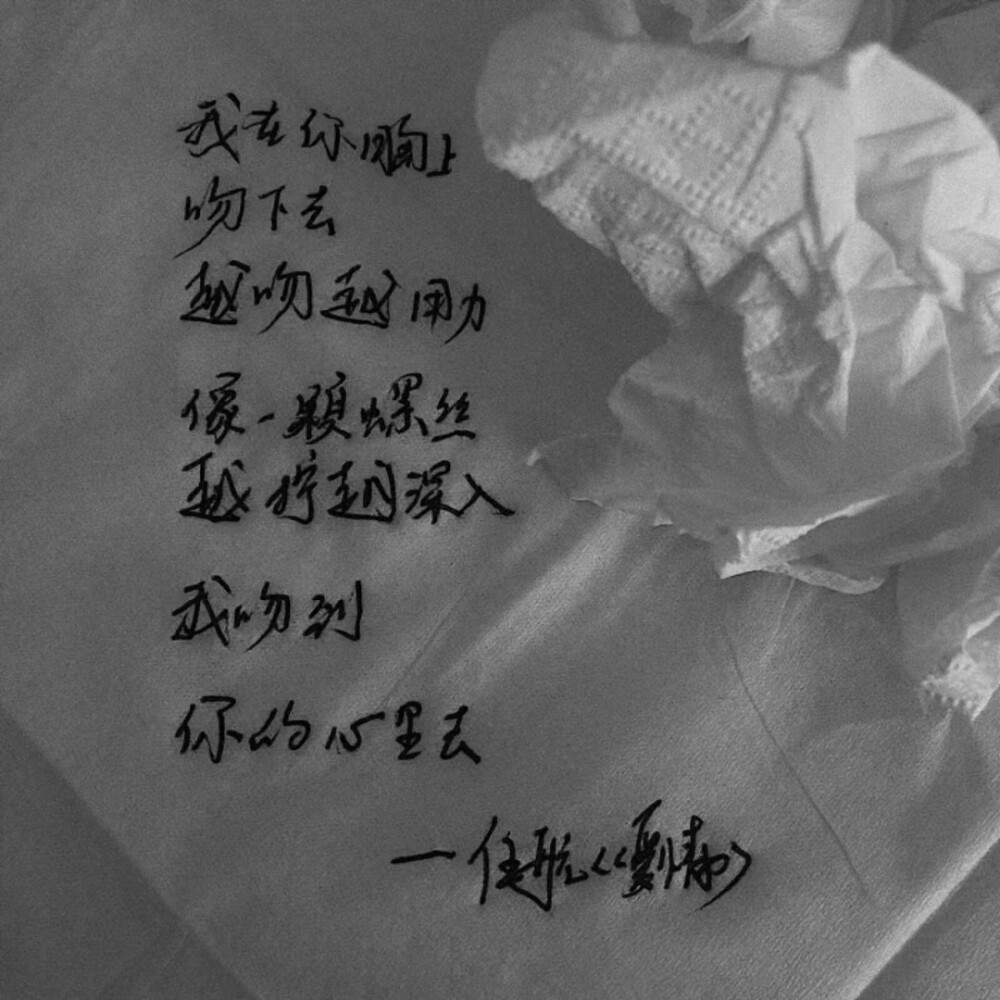 我在你胸上
吻下去
越吻越用力
像一颗螺丝
越拧越深入
我吻到
你的心里去
一任航《爱情》